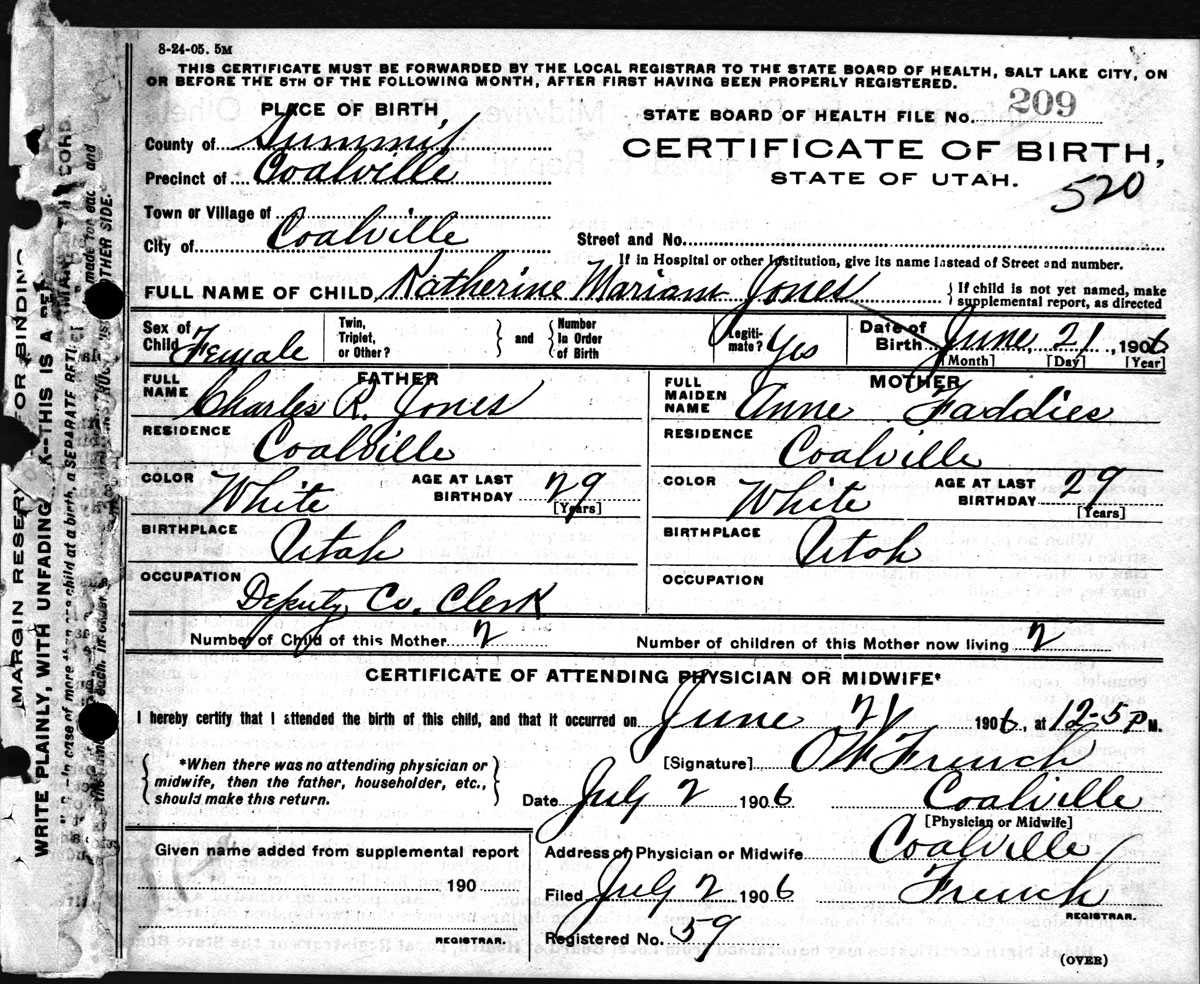 8-24-05. 5M
THIS CERTIFICATE MUST BE FORWARDED BY THE LOCAL REGISTRAR TO THE STATE BOARD OF HEALTH, SALT LAKE CITY, ON
OR BEFORE THE 5TH OF THE FOLLOWING MONTH, AFTER FIRST HAVING BEEN PROPERLY REGISTERED.
PLACE OF BIRTH,
STATE BOARD OF HEALTH FILE No. 209
County of Summit
CERTIFICATE OF BIRTH,
Precinct of Coalville
STATE OF UTAH.
520
Town or Village of
City of Coalville
Street and No.
If in Hospital or other Institution, give its name instead of Street and number.
FULL NAME OF CHILD Katherine Mariam Jones
If child is not yet named, make
supplemental report, as directed
Sex of Child Female
Twin, Triplet, or Other?
and
Number In Order of Birth
Legiti-mate? Yes
Date of Birth June, 21, 1906
[Month] [Day] [Year]
FATHER
FULL NAME Charles R. Jones
MOTHER
FULL MAIDEN NAME Anne Faddies
RESIDENCE Coalville
RESIDENCE Coalville
COLOR White
AGE AT LAST BIRTHDAY 29
[Years]
COLOR White
AGE AT LAST BIRTHDAY 29
[Years]
BIRTHPLACE Utah
BIRTHPLACE Utah
OCCUPATION Deputy Co. Clerk
OCCUPATION
Number of Child of this Mother 2
Number of children of this Mother now living 2
CERTIFICATE OF ATTENDING PHYSICIAN OR MIDWIFE*
I hereby certify that I attended the birth of this child, and that it occurred on June 21 1906, at 12-5 P M.
*When there was no attending physician or
midwife, then the father, householder, etc.,
should make this return.
[Signature] French
Date July 2 1906 Coalville
[Physician or Midwife]
Given name added from supplemental report
190
REGISTRAR.
Address of Physician or Midwife Coalville
Filed July 2 1906 French
REGISTRAR.
Registered No. 59
(OVER)
MARGIN RESERV FOR BINDING
WRITE PLAINLY, WITH UNFADING K—THIS IS A PER
In case of more than one child at a birth, a SEPARATE RET
made for eac and
OTHER SIDE.